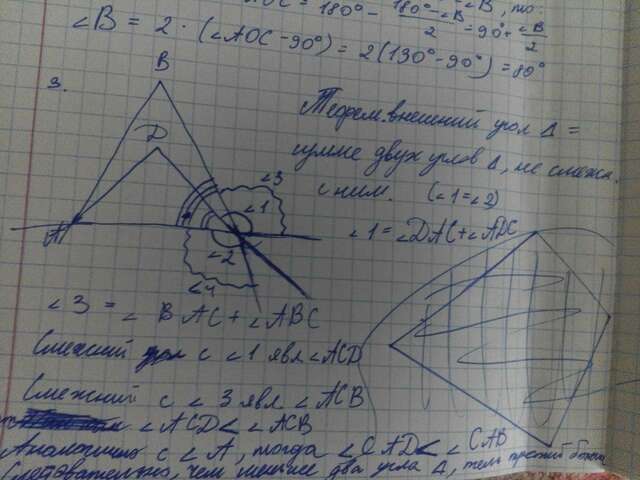 ∠AOC = 180° - (180° - ∠B)/2 = 90° + ∠B/2
∠B = 2 · (∠AOC - 90°) = 2(130° - 90°) = 80°
3.
B
D
A
∠3
∠1
∠2
∠4
Теорем. внешний угол Δ =
сумме двух углов Δ, не смежн.
с ним. (∠1=∠2)
∠1 = ∠DAC + ∠ADC
∠3 = ∠BAC + ∠ABC
Смежный угол с ∠1 явл ∠ACD
Смежный с ∠3 явл ∠ACB
∠ACD < ∠ACB
Аналогично с ∠A, тогда ∠CAD < ∠CAB
Следовательно, чем меньше два угла Δ, тем третий больш